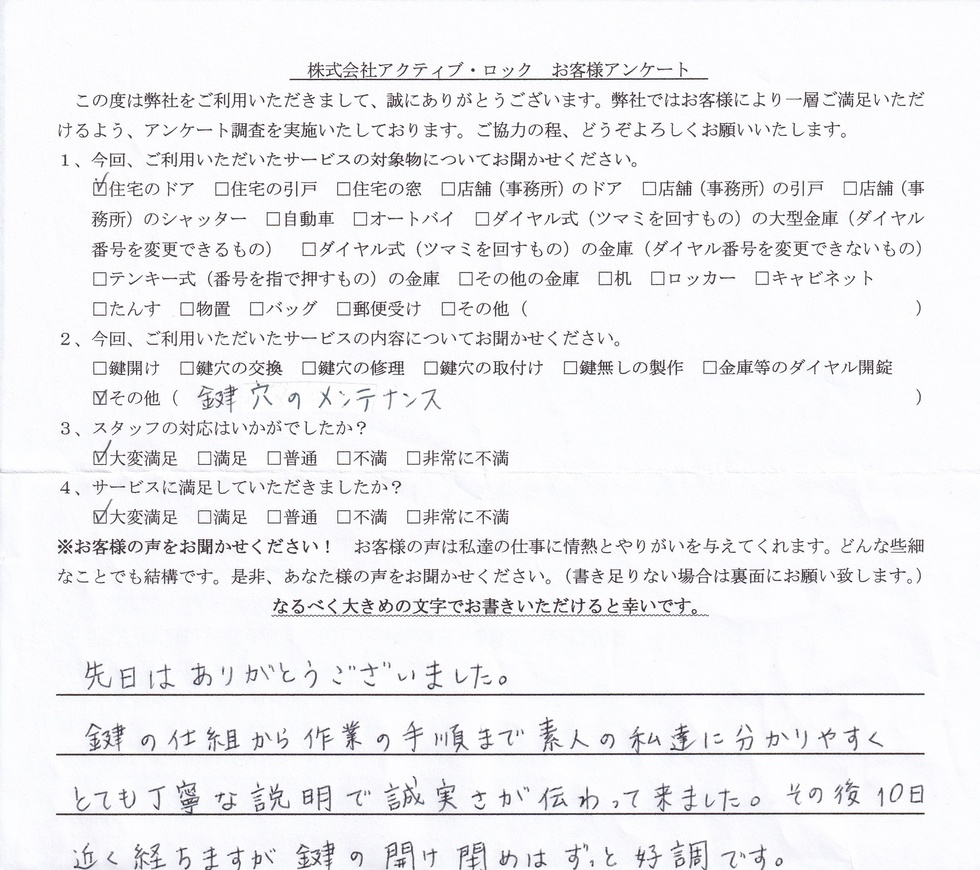 株式会社アクティブ・ロック　お客様アンケート
この度は弊社をご利用いただきまして、誠にありがとうございます。弊社ではお客様により一層ご満足いただ
けるよう、アンケート調査を実施いたしております。ご協力の程、どうぞよろしくお願いいたします。
1、今回、ご利用いただいたサービスの対象物についてお聞かせください。
☑住宅のドア　□住宅の引戸　□住宅の窓　□店舗（事務所）のドア　□店舗（事務所）の引戸　□店舗（事
務所）のシャッター　□自動車　□オートバイ　□ダイヤル式（ツマミを回すもの）の大型金庫（ダイヤル
番号を変更できるもの）　□ダイヤル式（ツマミを回すもの）の金庫（ダイヤル番号を変更できないもの）
□テンキー式（番号を指で押すもの）の金庫　□その他の金庫　□机　□ロッカー　□キャビネット
□たんす　□物置　□バッグ　□郵便受け　□その他（　）
2、今回、ご利用いただいたサービスの内容についてお聞かせください。
□鍵開け　□鍵穴の交換　□鍵穴の修理　□鍵穴の取付け　□鍵無しの製作　□金庫等のダイヤル開錠
☑その他（　鍵穴のメンテナンス　）
3、スタッフの対応はいかがでしたか？
☑大変満足　□満足　□普通　□不満　□非常に不満
4、サービスに満足していただきましたか？
☑大変満足　□満足　□普通　□不満　□非常に不満
※お客様の声をお聞かせください！　お客様の声は私達の仕事に情熱とやりがいを与えてくれます。どんな些細
なことでも結構です。是非、あなた様の声をお聞かせください。（書き足りない場合は裏面にお願い致します。）
なるべく大きめの文字でお書きいただけると幸いです。
先日はありがとうございました。
鍵の仕組から作業の手順まで素人の私達に分かりやすく
とても丁寧な説明で誠実さが伝わって来ました。その後10日
近く経ちますが鍵の開け閉めはずっと好調です。